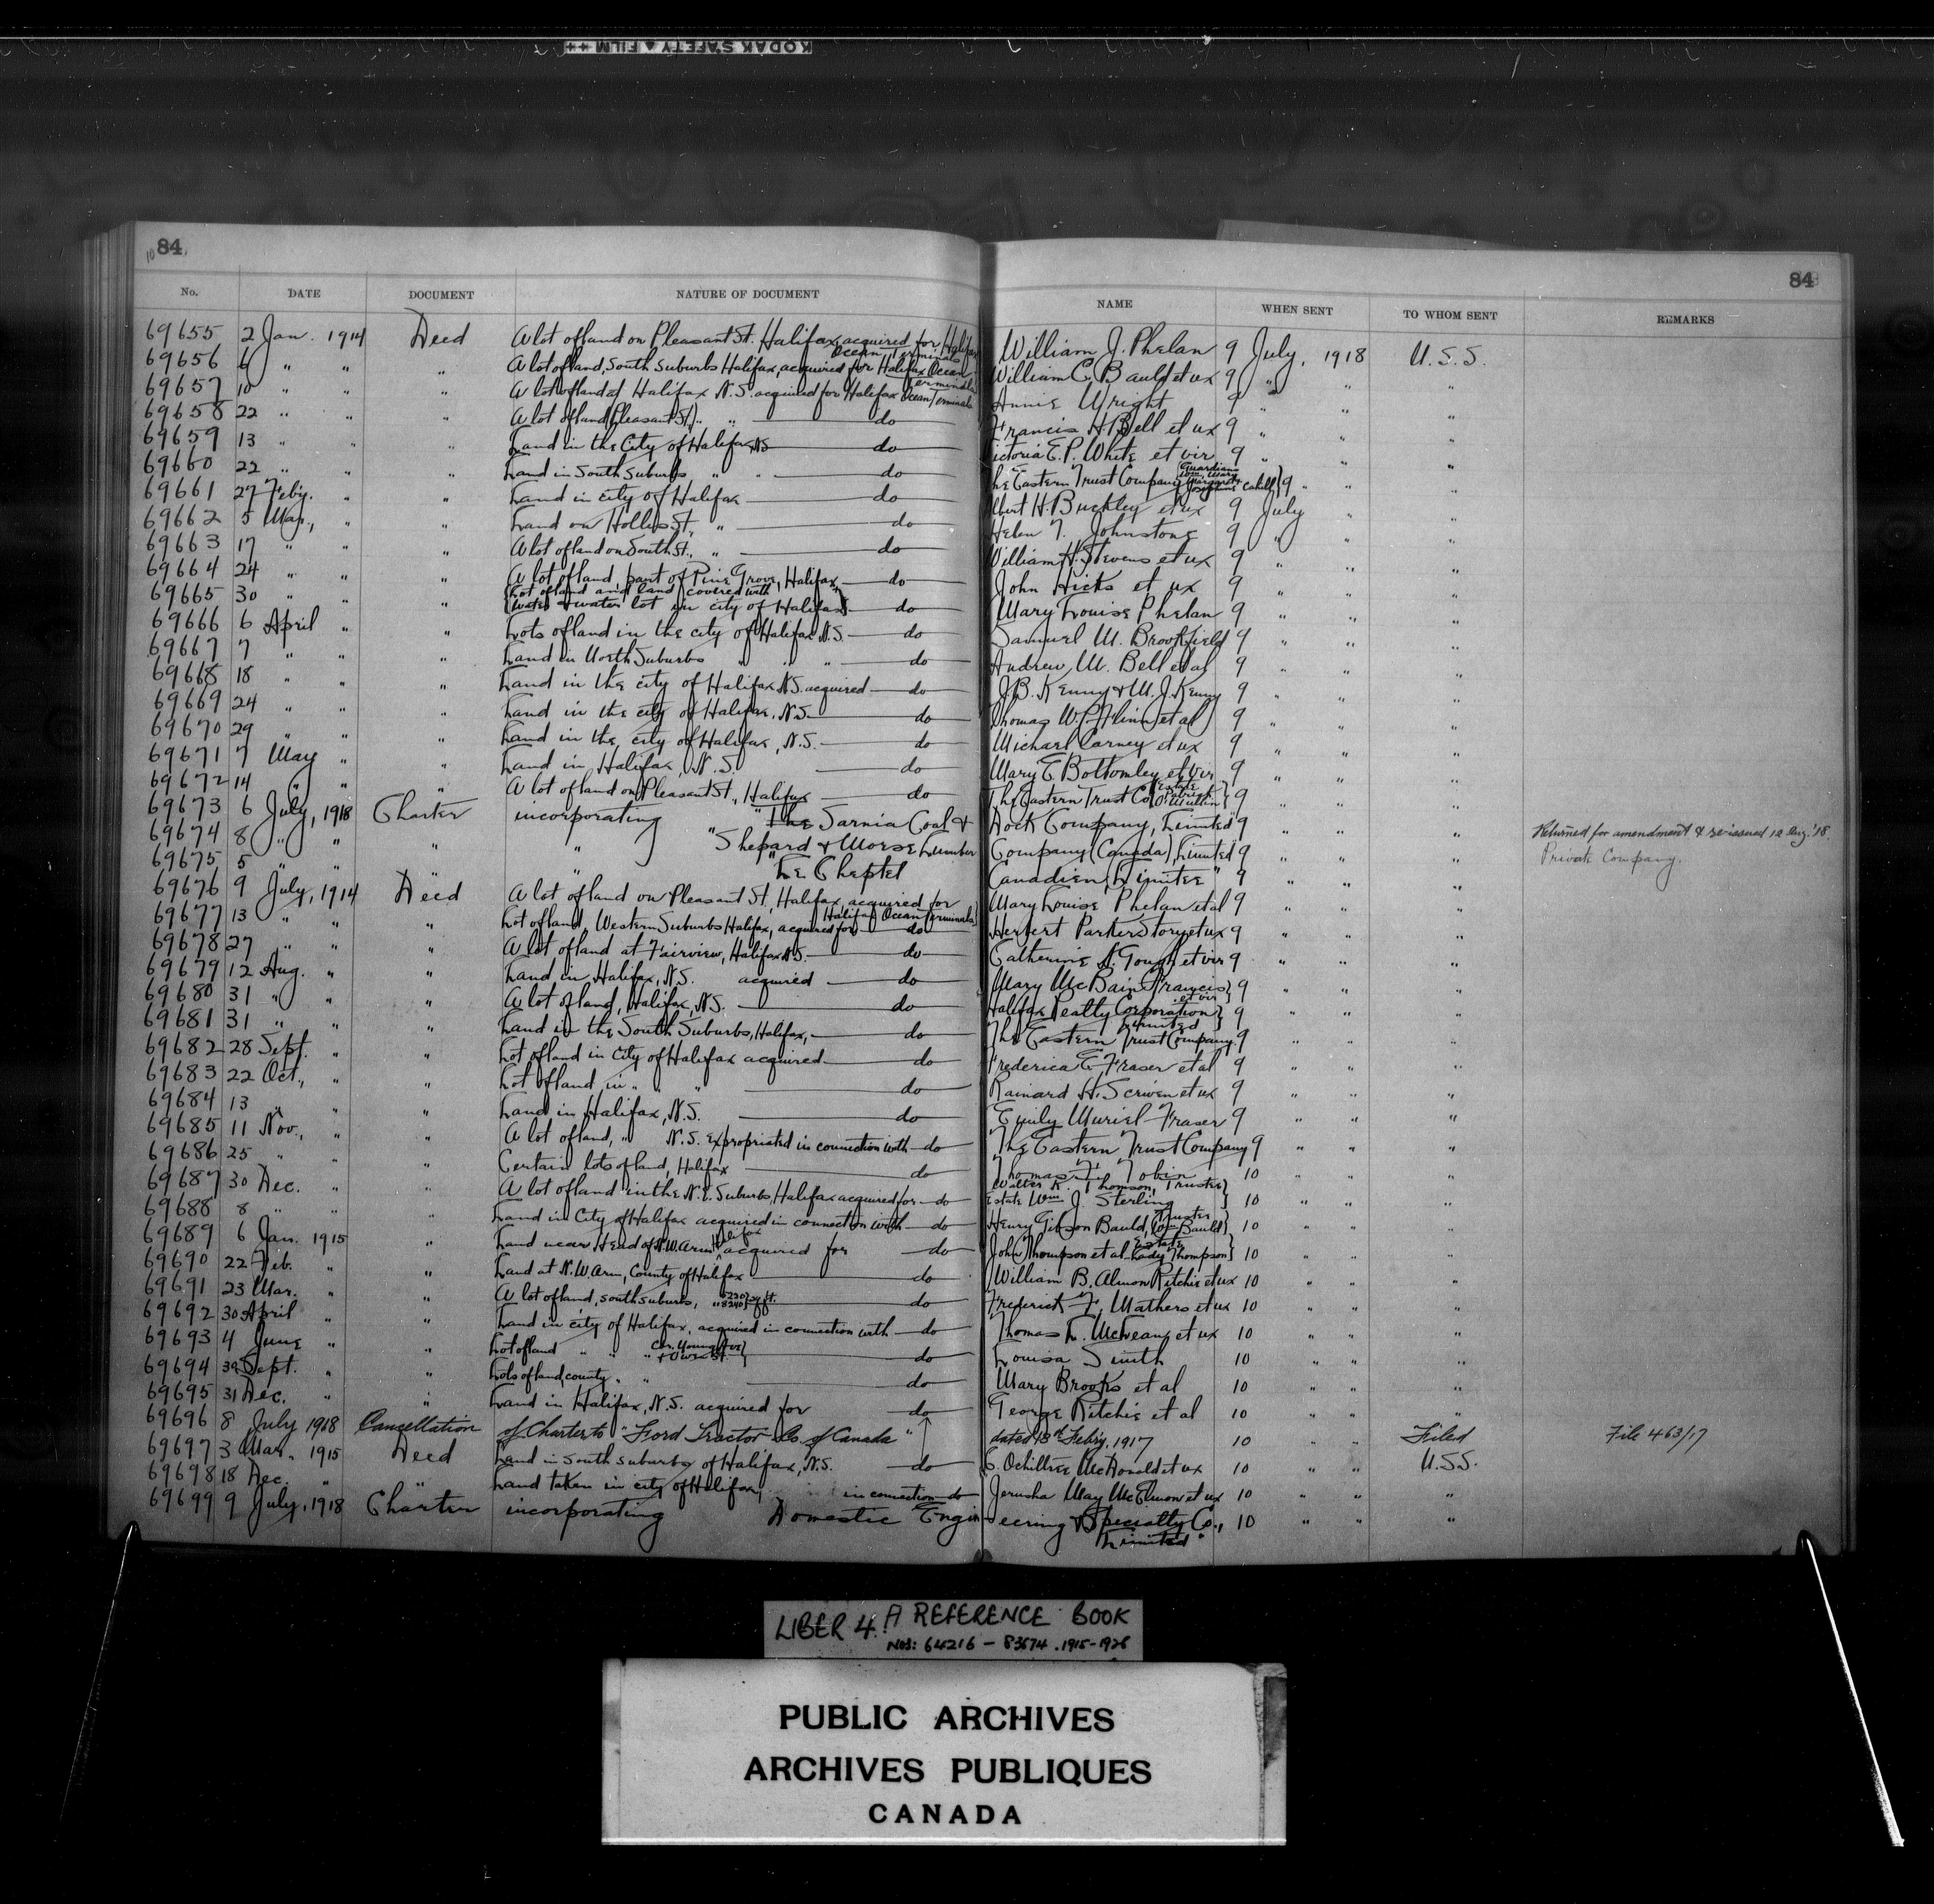 KODAK SAFETY ▲ FILM ++
84 84
No. DATE DOCUMENT NATURE OF DOCUMENT NAME WHEN SENT TO WHOM SENT REMARKS
69655 2 Jan. 1914 Deed A lot of land on Pleasant St. Halifax, acquired for Halifax Ocean Terminals William J. Phelan 9 July, 1918 U.S.S.
69656 6 " " " A lot of land, South Suburbs Halifax, acquired for Halifax Ocean Terminals William C. Bauld et ux 9 " " "
69657 10 " " " A lot of land at Halifax N.S. acquired for Halifax Ocean Terminals Annie Wright 9 " " "
69658 22 " " " A lot of land (Pleasant St.) " " do Francis H. Bell et ux 9 " " "
69659 13 " " " Land in the City of Halifax N.S. do Victoria E.P. White et vir 9 " " "
69660 22 " " " Land in South Suburbs " " do The Eastern Trust Company Guardians Mary Margaret Josephine Cahill} 9 " " "
69661 27 Feby. " " Land in city of Halifax do Albert H. Buckley et ux 9 July " "
69662 5 Mar., " " Land on Hollis St., " do Helen T. Johnstone 9 " " "
69663 17 " " " A lot of land on South St., " do William H. Stevens et ux 9 " " "
69664 24 " " " A lot of land, part of Pine Grove, Halifax, do John Hicks et ux 9 " " "
69665 30 " " " {Lot of land and land covered with water & water lot in city of Halifax do Mary Louise Phelan 9 " " "
69666 6 April " " Lots of land in the city of Halifax N.S. do Samuel M. Brookfield 9 " " "
69667 7 " " " Land in North Suburbs " " " do Andrew M. Bell et al 9 " " "
69668 18 " " " Land in the city of Halifax N.S. acquired do J.B. Kenny & W.J. Kenny 9 " " "
69669 24 " " " Land in the city of Halifax, N.S. do Thomas W.P. Flinn et al 9 " " "
69670 29 " " " Land in the city of Halifax, N.S. do Michael Carney et ux 9 " " "
69671 7 May " " Land in Halifax, N.S. do Mary E Bottomley et vir 9 " " "
69672 14 " " " A lot of land on Pleasant St., Halifax do The Eastern Trust Co. Estate Patrick O'Mullin} 9 " " "
69673 6 July, 1918 Charter incorporating "The Sarnia Coal & Dock Company, Limited" 9 " " "
69674 8 " " " " "Shepard & Morse Lumber Company (Canada), Limited 9 " " " Returned for amendment & re-issued 12 Aug. '18.
69675 5 " " " " "Le Cheptel Canadien, Limitee" 9 " " " Private Company.
69676 9 July, 1914 Deed A lot of land on Pleasant St, Halifax, acquired for Halifax Ocean Terminals Mary Louise Phelan et al 9 " " "
69677 13 " " " Lot of land, Western Suburbs Halifax, acquired for do Herbert Parker Story et ux 9 " " "
69678 27 " " " A lot of land at Fairview, Halifax N.S. do Catherine A. Gough et vir 9 " " "
69679 12 Aug. " " Land in Halifax, N.S. acquired do Mary McBain Francis et vir} 9 " " "
69680 31 " " " A lot of land, Halifax, N.S. do Halifax Realty Corporation Limited} 9 " " "
69681 31 " " " Land in the South Suburbs, Halifax, do The Eastern Trust Company 9 " " "
69682 28 Sept. " " Lot of land in City of Halifax acquired do Frederica E. Fraser et al 9 " " "
69683 22 Oct., " " Lot of land in " " " do Rainard H. Scriven et ux 9 " " "
69684 13 " " " Land in Halifax, N.S. do Emily Muriel Fraser 9 " " "
69685 11 Nov., " " A lot of land, " N.S. expropriated in connection with do The Eastern Trust Company 9 " " "
69686 25 " " " Certain lots of land, Halifax do Thomas F. Tobin 10 " " "
69687 30 Dec. " " A lot of land in the N.E. Suburbs, Halifax acquired for do Walter K. Thomson, Trustee Estate Wm. J. Sterling} 10 " " "
69688 8 " " " Land in City of Halifax acquired in connection with do Henry Gibson Bauld, Trustee Bauld} 10 " " "
69689 6 Jan. 1915 " Land near Head of N.W. Arm Halifax acquired for do John Thompson et al. Estate Lady Thompson} 10 " " "
69690 22 Feb. " " Land at N.W. Arm, County of Halifax do William B. Almon Ritchie et ux 10 " " "
69691 23 Mar. " " A lot of land, south suburbs, sq. ft. do Frederick F. Mathers et ux 10 " " "
69692 30 April " " Land in city of Halifax, acquired in connection with do Thomas L. et ux 10 " " "
69693 4 June " " Lot of land " " " Cor. Young Ave. & Owen St.} do Louisa Smith 10 " " "
69694 Sept. " " Lots of land, county " " do Mary Brooks et al 10 " " "
69695 31 Dec. " " Land in Halifax, N.S. acquired for do George Ritchie et al 10 " " "
69696 8 July 1918 Cancellation of Charter to "Ford Tractor Co. of Canada" dated 13th Feby, 1917 10 " " Filed File 463/17
69697 3 Mar., 1915 Deed Land in South suburbs of Halifax, N.S. do C. Ochiltree McDonald et ux 10 " " U.S.S.
69698 18 Dec. " " Land taken in city of Halifax, in connection do Jerusha May McElmon et ux 10 " " "
69699 9 July, 1918 Charter incorporating Domestic Engineering & Specialty Co., Limited" 10 " " "
LIBER 4. A REFERENCE BOOK
NOS: 64216 - 83674 . 1915-1928
PUBLIC ARCHIVES
ARCHIVES PUBLIQUES
CANADA